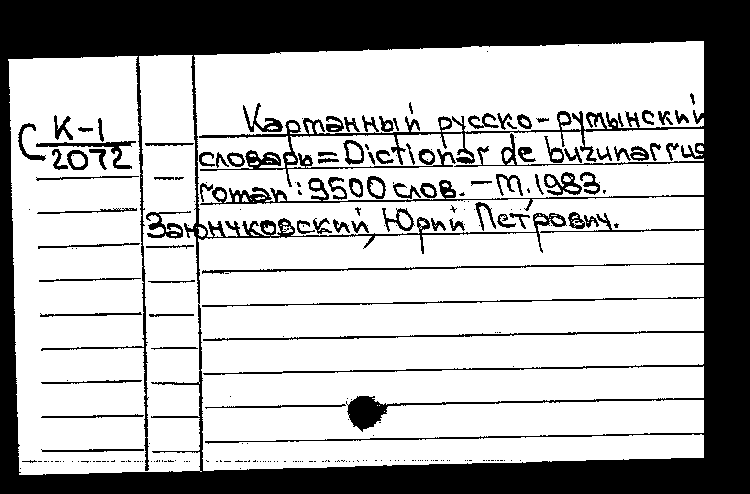 С К-1
2072
Карманный русско-румынский
словарь = Dictionar de buzunar rus
roman : 9500 слов. – М. 1983.
Заюнчковский, Юрий Петрович.